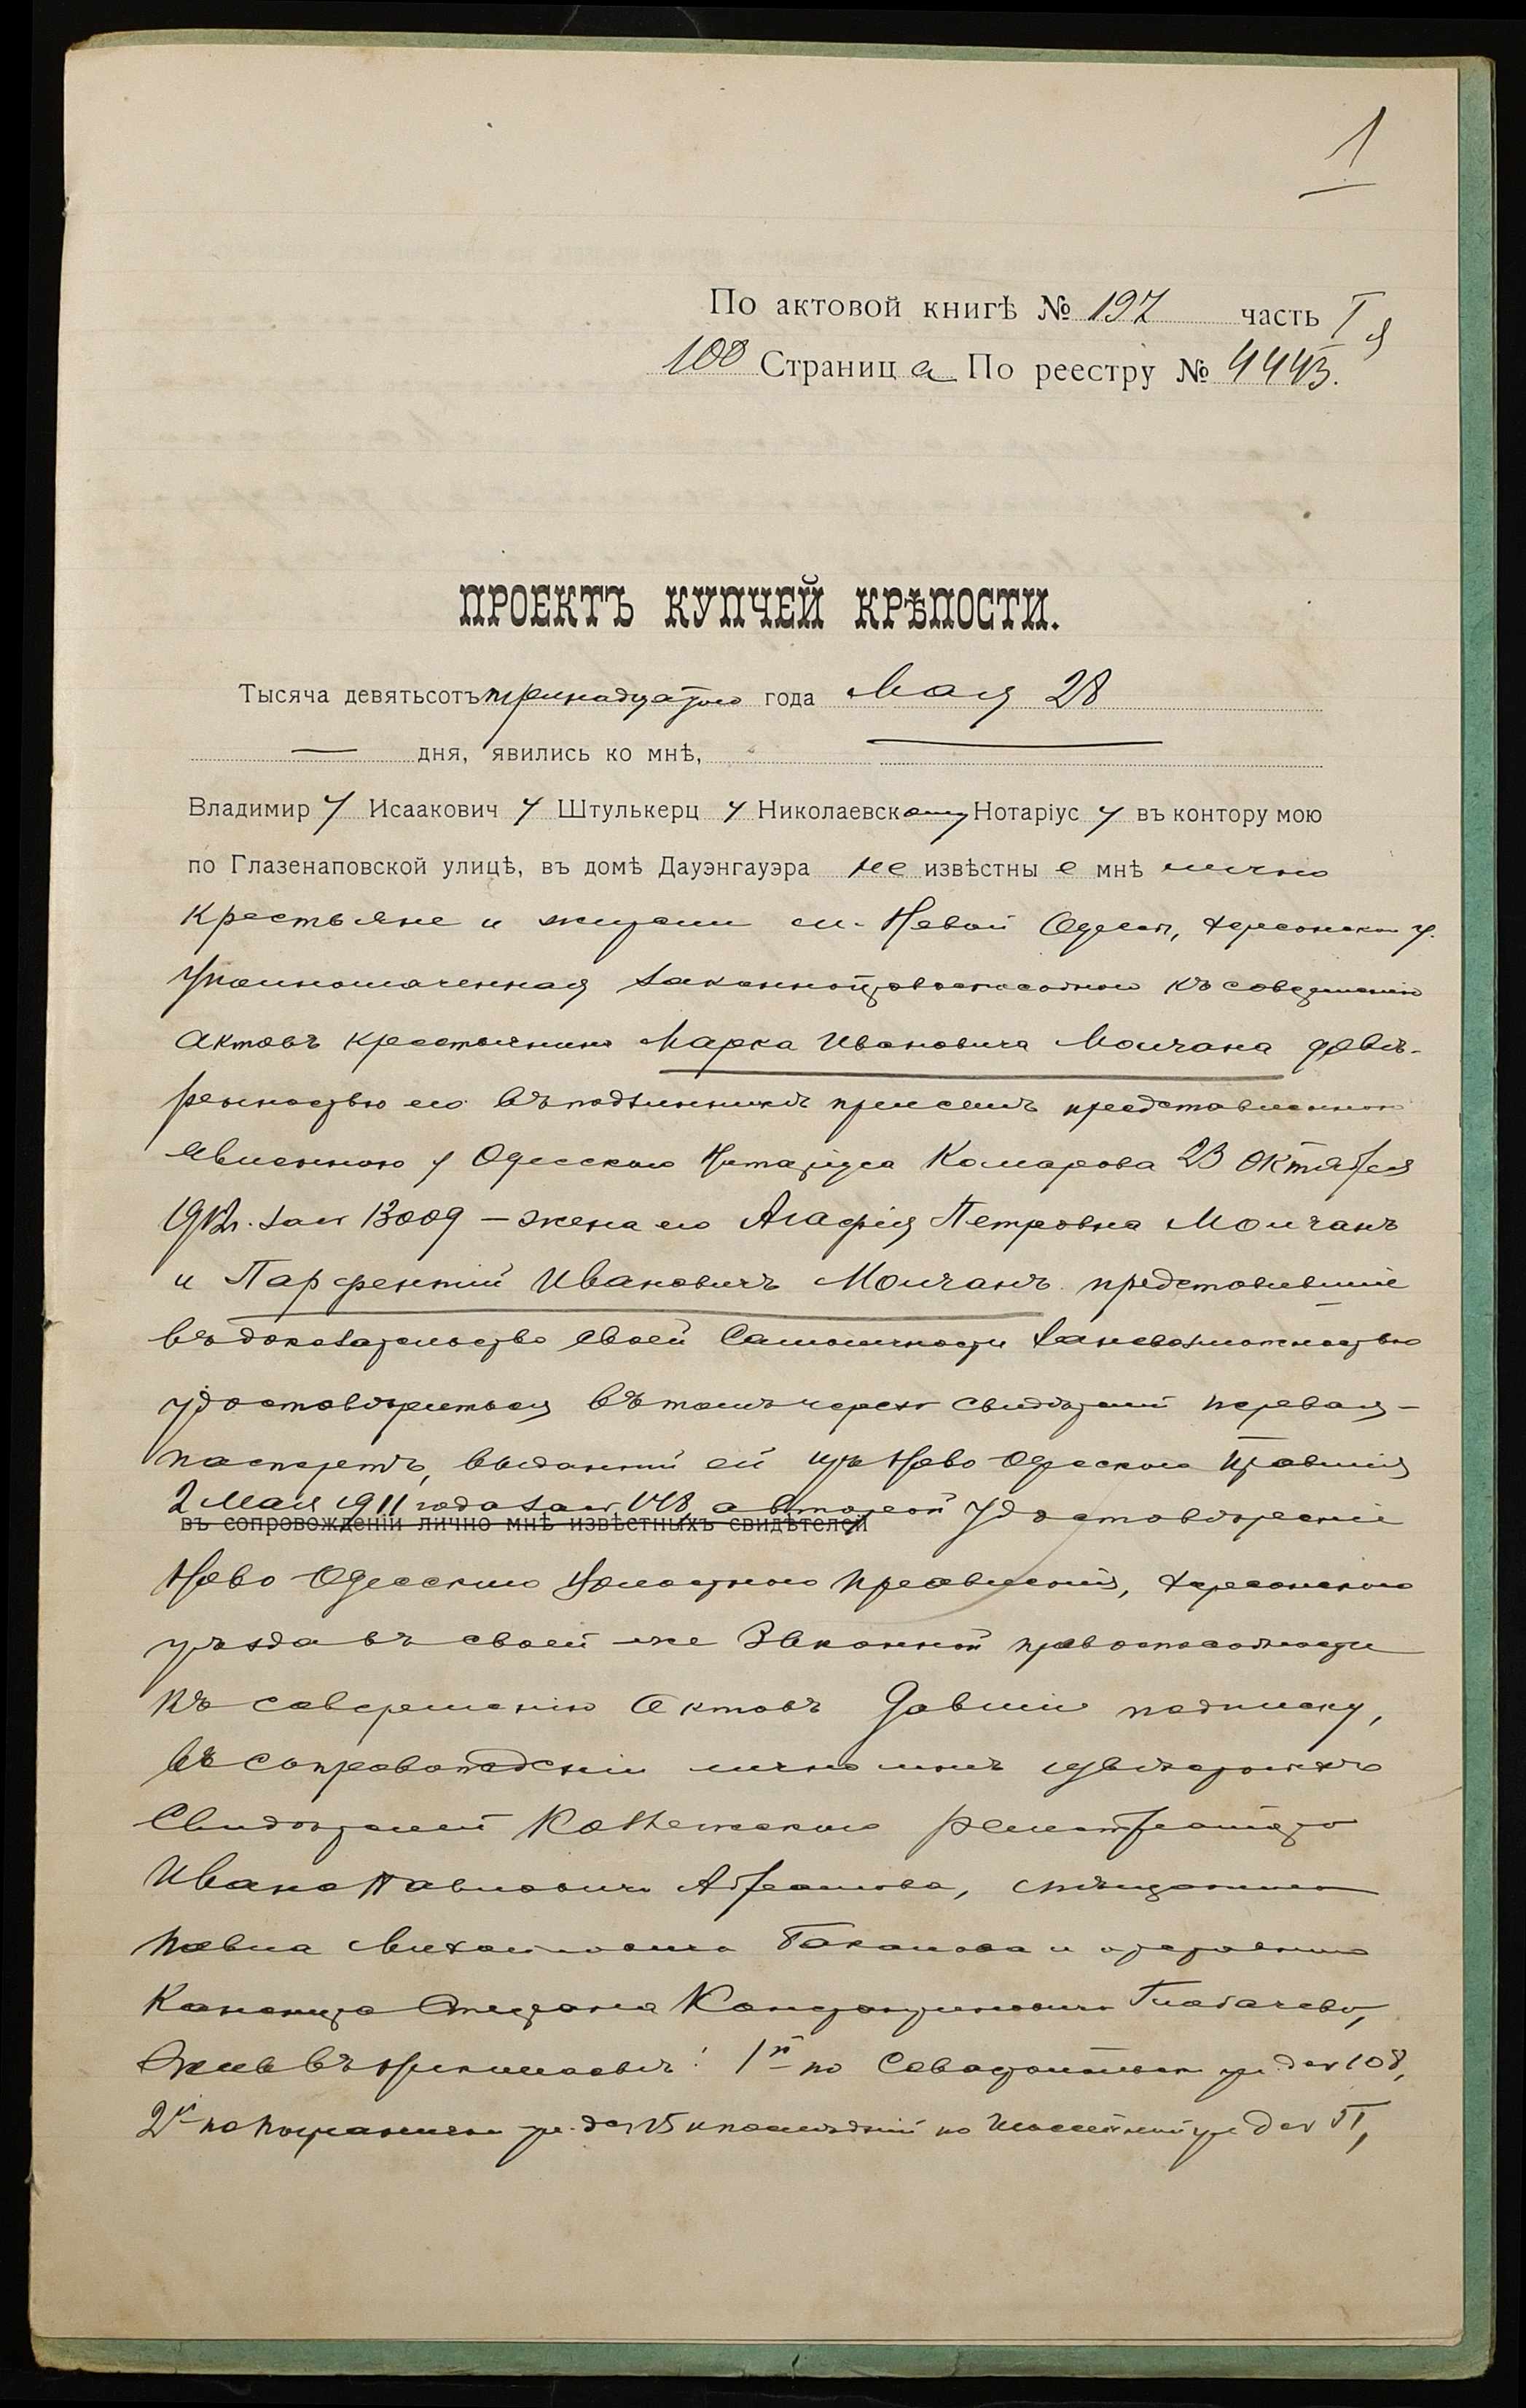 1
По актовой книгѣ № 197 часть I я
100 Страница По реестру № 4443.
ПРОЕКТЪ КУПЧЕЙ КРѢПОСТИ.
Тысяча девятьсотъ тринадцатаго года Мая 28
дня, явились ко мнѣ,
Владимиру Исааковичу Штулькерцу Николаевскому Нотаріусу въ контору мою
по Глазенаповской улицѣ, въ домѣ Дауэнгауэра не извѣстные мнѣ лично
крестьяне и жители м. Новой Одессы, Херсонскаго у.
уполномоченная законно правоспособнаго къ совершенію
актовъ крестьянина Марка Ивановича Молчана довѣ-
ренностью его въ подлинникѣ при семъ представленною
явленною у Одесскаго Нотаріуса Комарова 23 Октября
1912 г. за № 13009 — жена его Агафія Петровна Молчанъ
и Парфентій Ивановичъ Молчанъ представившіе
въ доказательство своей самоличности за невозможностью
удостовѣриться въ томъ черезъ свидѣтелей первая —
паспортъ, выданный ей изъ Ново Одесскаго Правленія
2 Мая 1911 года за № 148, а второй удостовѣреніе
въ сопровожденіи лично мнѣ извѣстныхъ свидѣтелей
Ново Одесскаго Волостного Правленія, Херсонскаго
уѣзда въ своей же законной правоспособности
къ совершенію актовъ давшіе подписку,
въ сопровожденіи лично мнѣ извѣстныхъ
Свидѣтелей Коллежскаго регистратора
Ивана Павловича Абрамова, мѣщанина
Павла Михайловича и
Степана Константиновича
жив. въ Николаевѣ: 1й по ул. д. № 108,
2й по ул. д. № 15 и послѣдній по ул. д. №